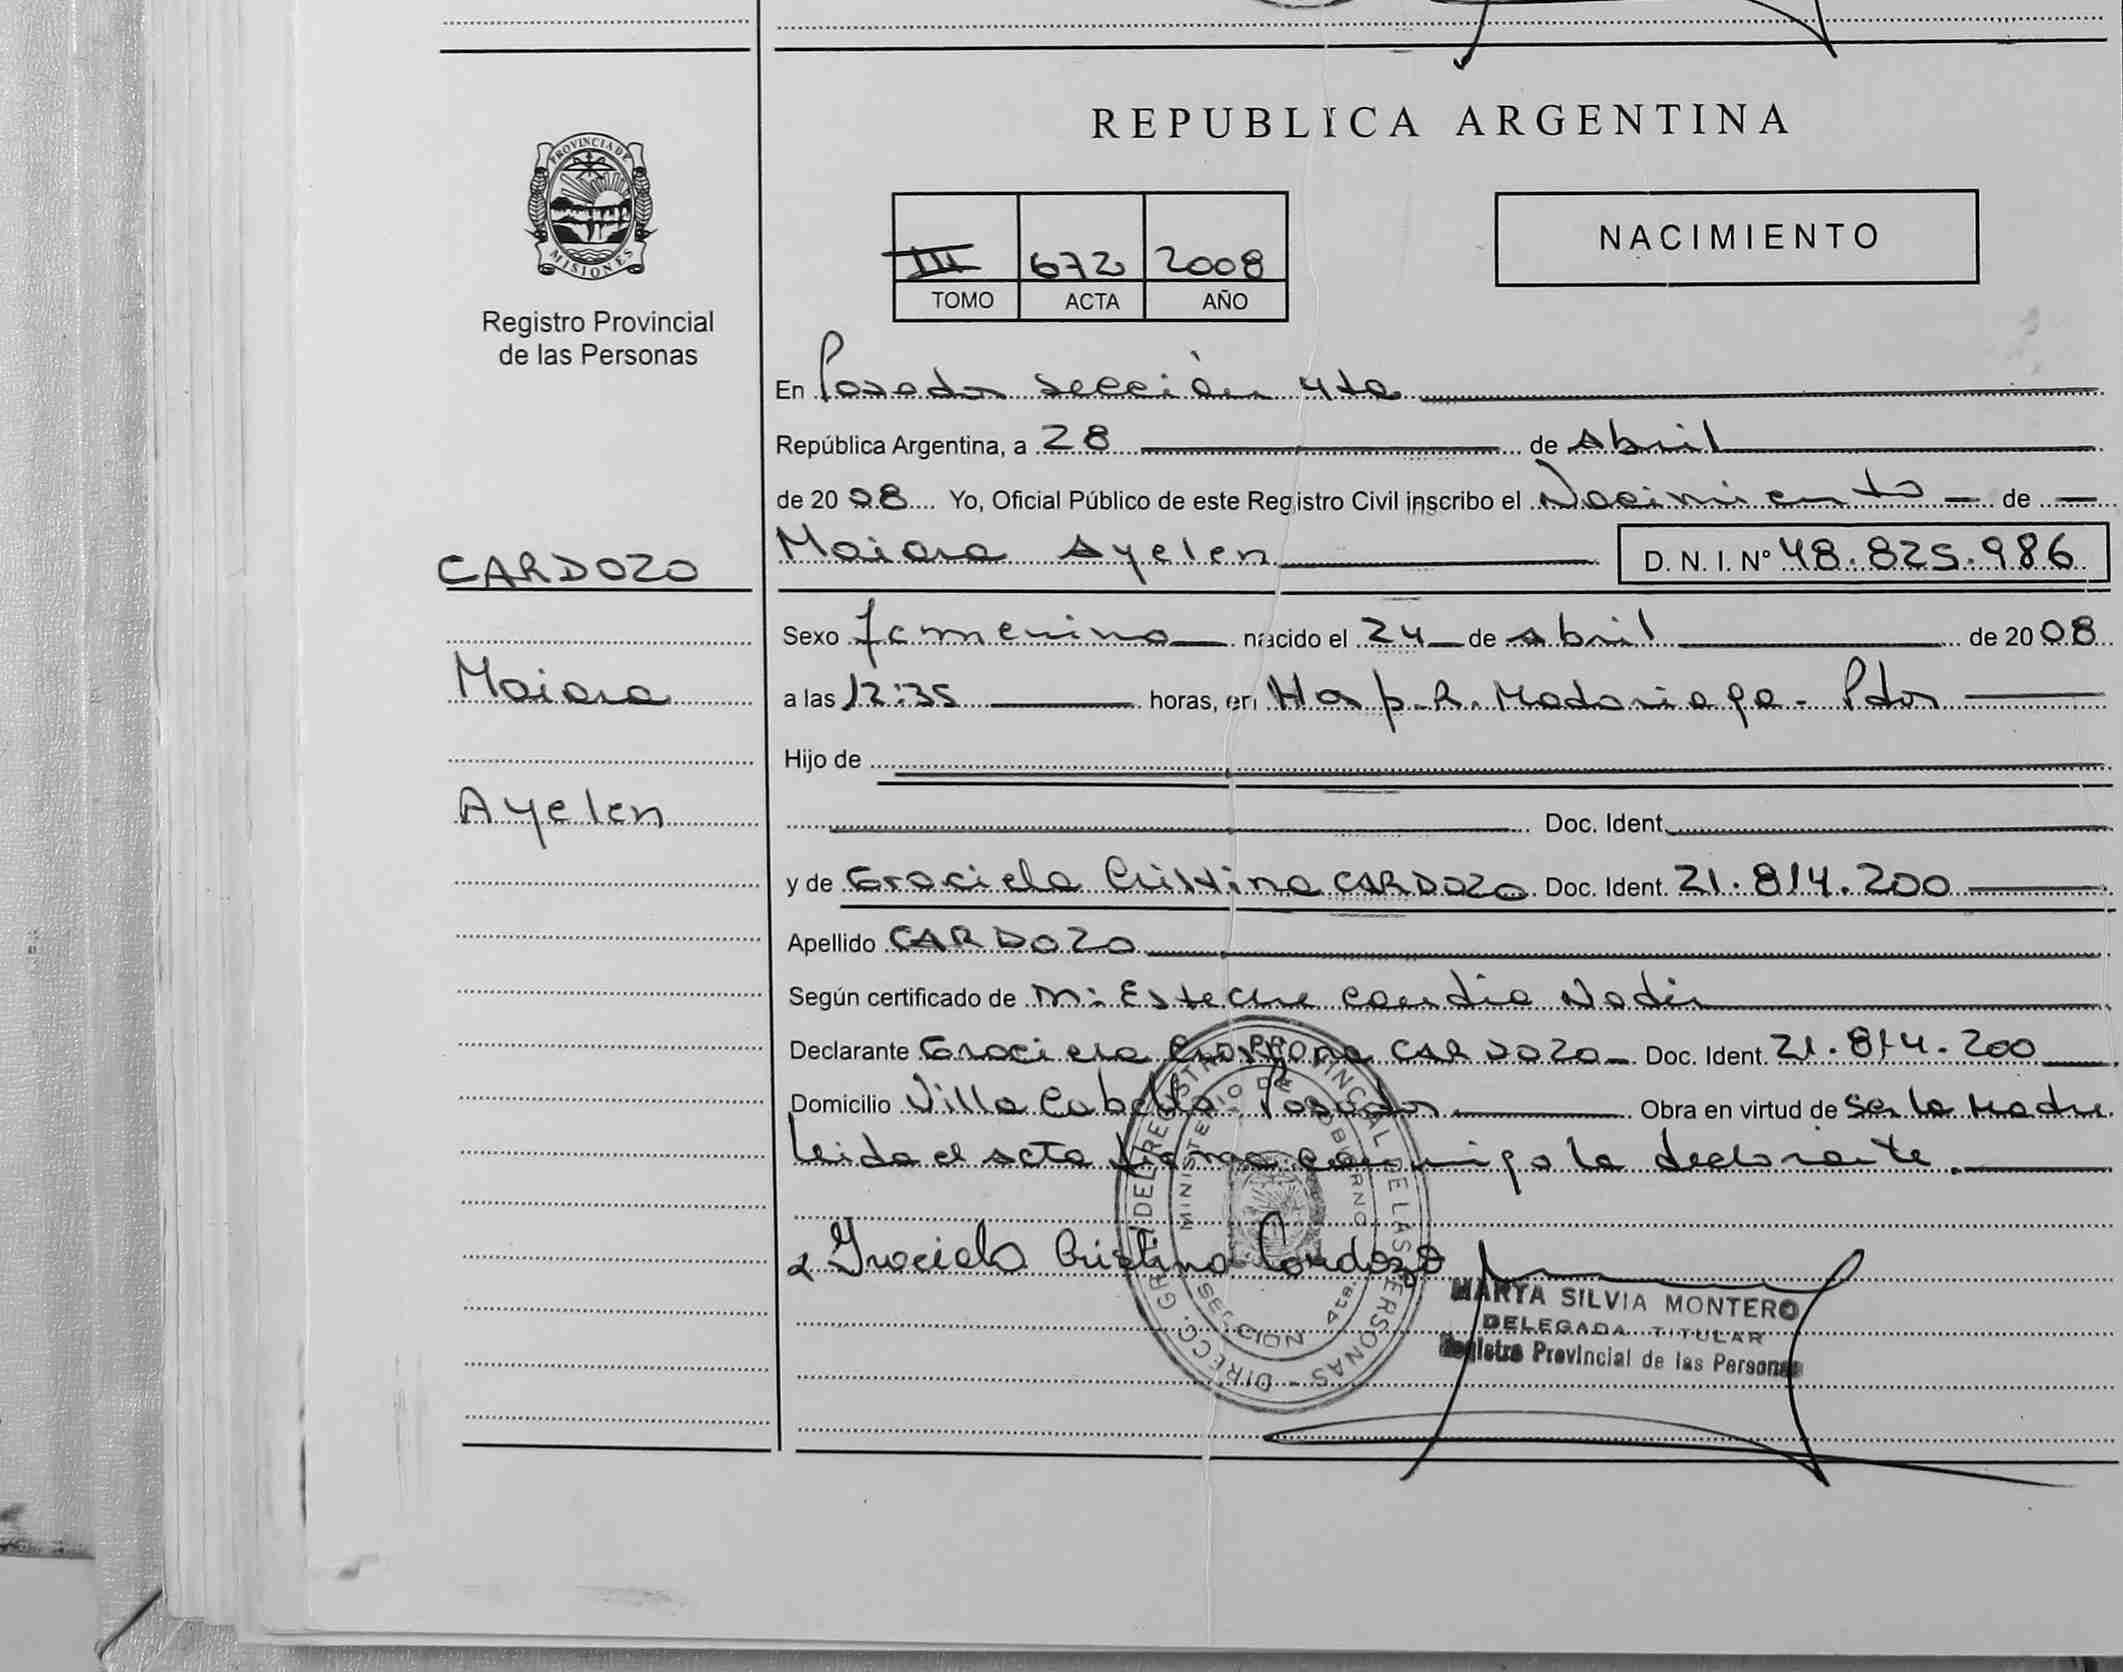 REPUBLICA ARGENTINA
PROVINCIA DE
MISIONES
Registro Provincial
de las Personas
III 672 2008
TOMO ACTA AÑO
NACIMIENTO
En Posadas sección 4ta
República Argentina, a 28 de Abril
de 2008 Yo, Oficial Público de este Registro Civil inscribo el Nacimiento de
CARDOZO
Maiara Ayelen D. N. I. Nº 48.825.986
Sexo femenino nacido el 24 de Abril de 2008
Maiara
a las 12:35 horas, en Hosp. R. Madariaga - Pdas
Hijo de
Ayelen
Doc. Ident.
y de Graciela Cristina CARDOZO Doc. Ident. 21.814.200
Apellido CARDOZO
Según certificado de M: Esteche Nadir
Declarante Graciela Cristina CARDOZO Doc. Ident. 21.814.200
Domicilio Villa Cabello Posadas Obra en virtud de Ser la Madre
leida el acta firma conmigo la declarante.
Graciela Cristina Cardozo
DIRECC. GRAL DEL REGISTRO PROVINCIAL DE LAS PERSONAS
MINISTERIO DE GOBIERNO
SECCION 4ta.
MARTA SILVIA MONTERO
DELEGADA TITULAR
Registro Provincial de las Personas